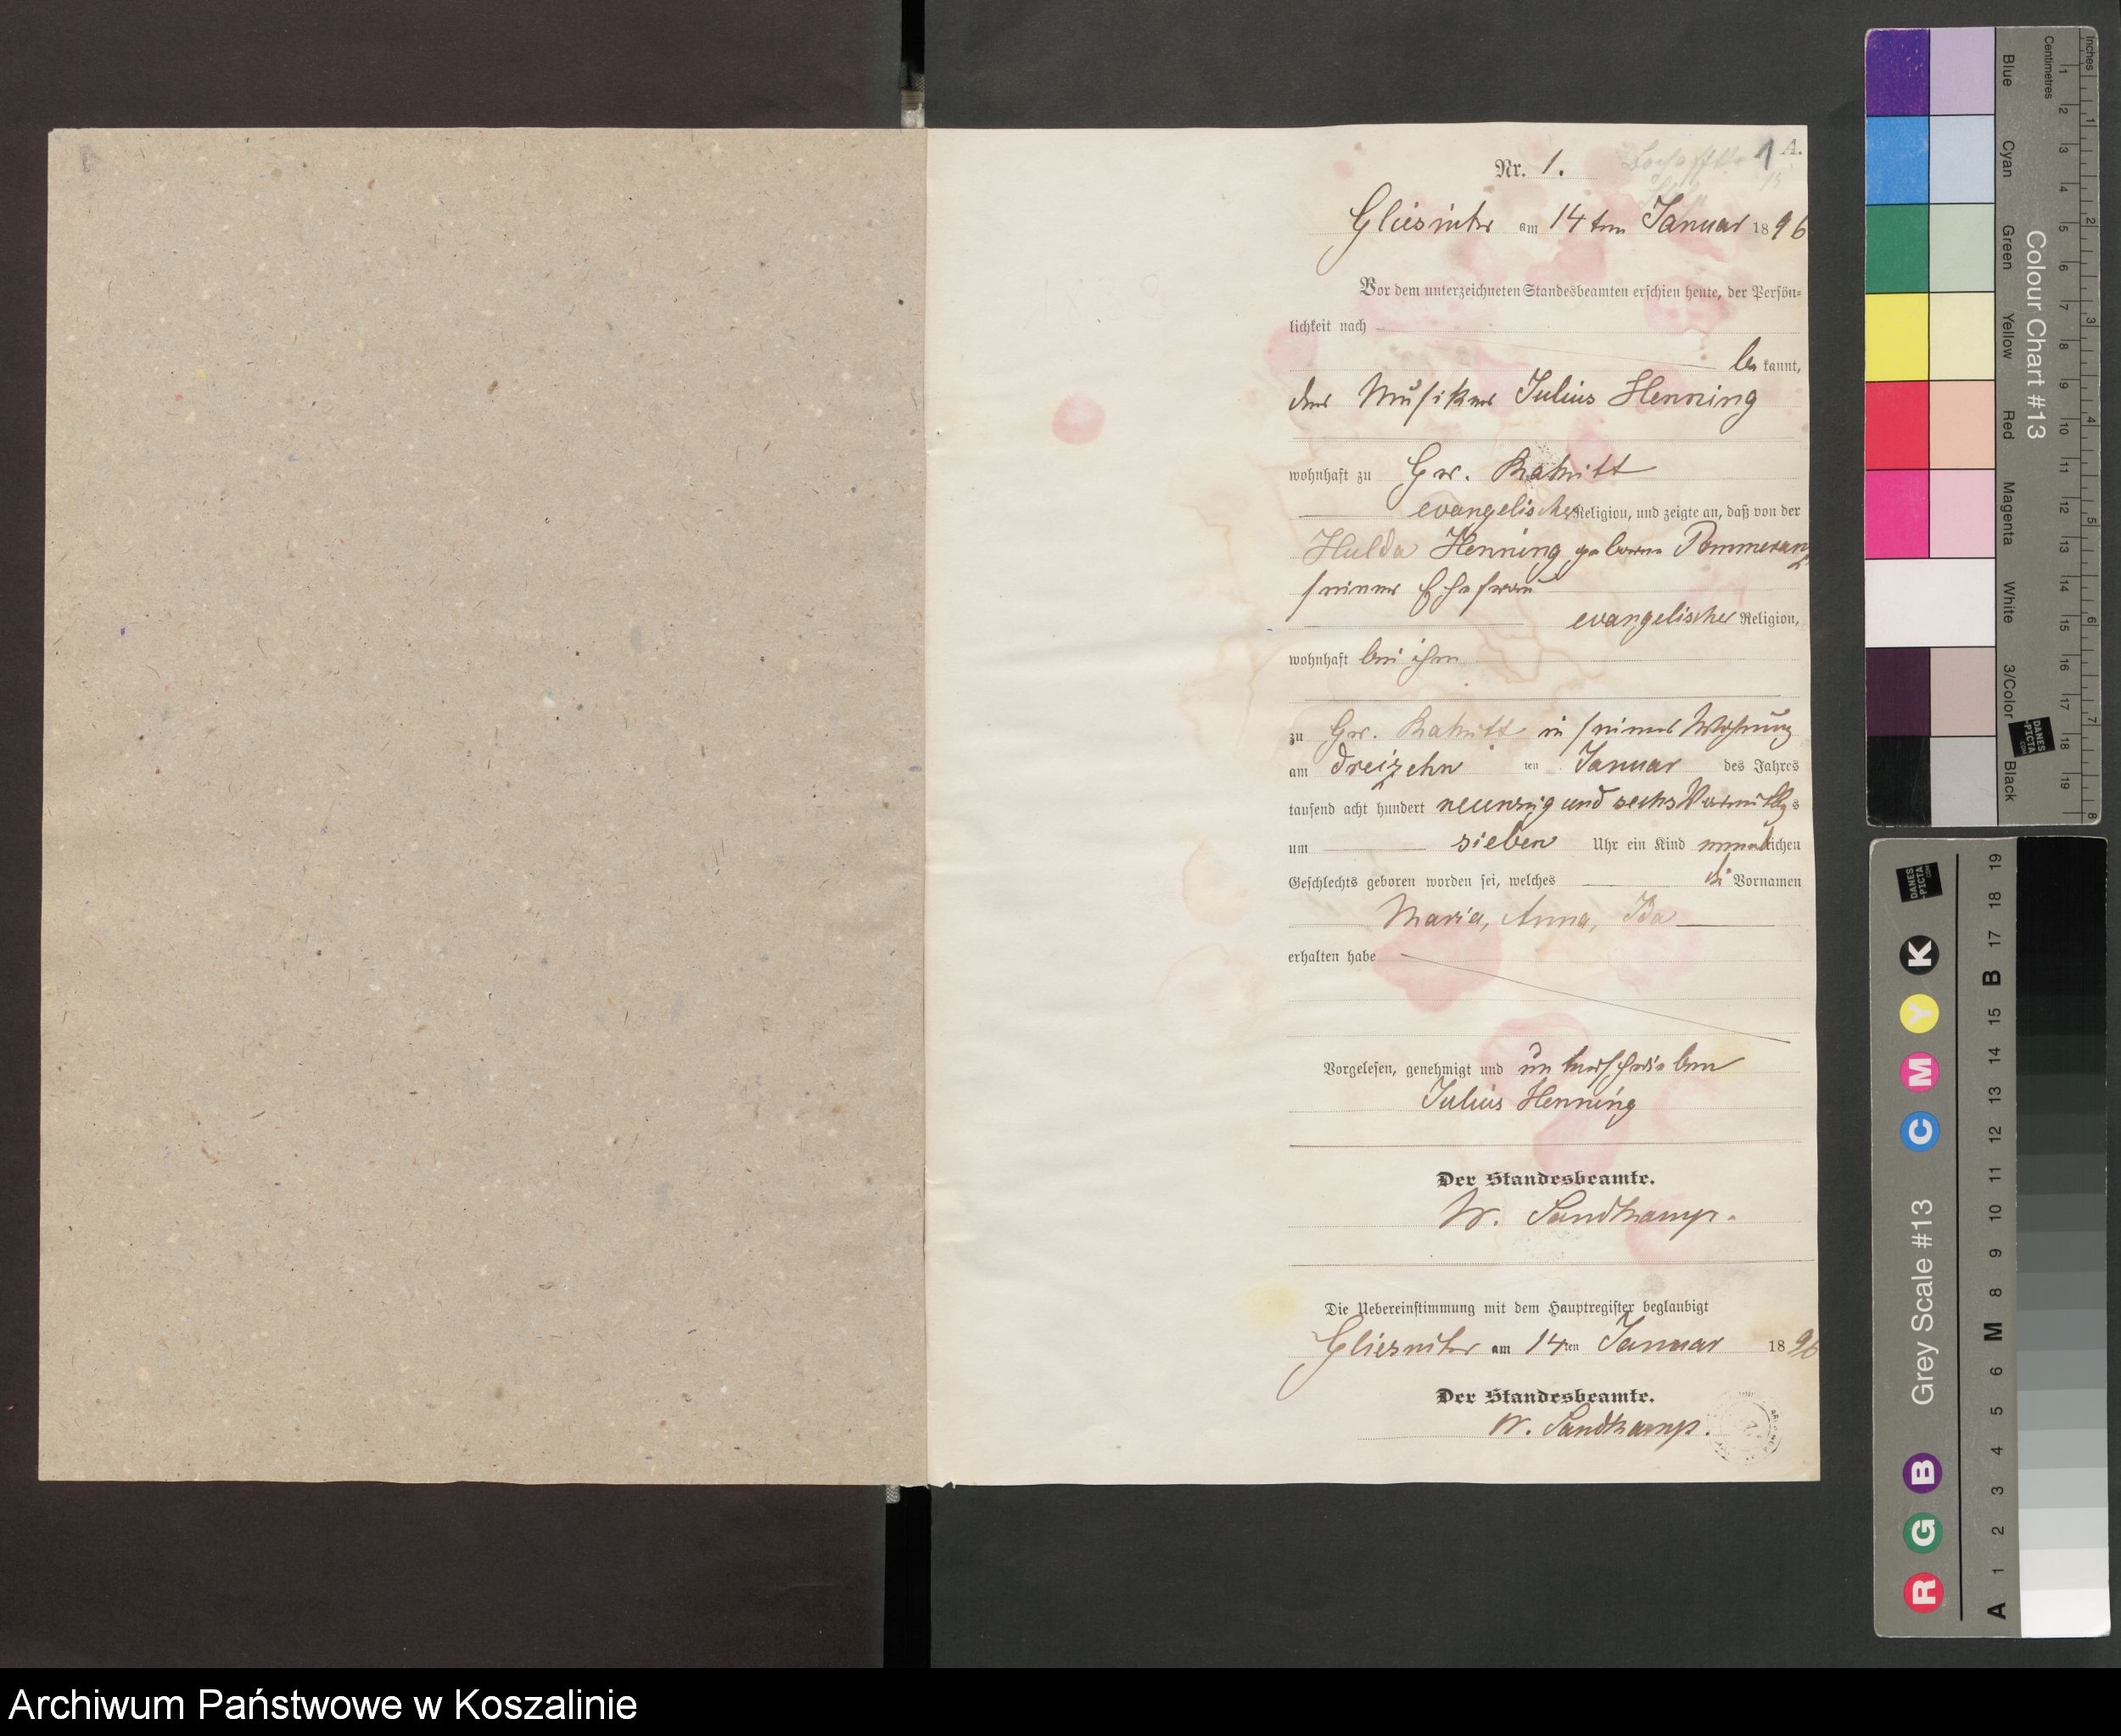 A.
1
Nr. 1.
Gliesnitz am 14ten Januar 1896
Vor dem unterzeichneten Standesbeamten erschien heute, der Persön-
lichkeit nach
bekannt,
der Musiker Julius Henning
wohnhaft zu Gr. Rakitt
evangelischer Religion, und zeigte an, daß von der
Hulda Henning geborene Pommeranz
seiner Ehefrau
evangelischer Religion,
wohnhaft bei ihm
zu Gr. Rakitt in seiner Wohnung
am dreizehn ten Januar des Jahres
tausend acht hundert neunzig und sechs Vormittags
um sieben Uhr ein Kind weiblichen
Geschlechts geboren worden sei, welches die Vornamen
Maria, Anna, Ida
erhalten habe
Vorgelesen, genehmigt und unterschrieben
Julius Henning
Der Standesbeamte.
W. Sandkamp.
Die Uebereinstimmung mit dem Hauptregister beglaubigt
Gliesnitz am 14ten Januar 1896
Der Standesbeamte.
W. Sandkamp.
Inches
Centimetres
Colour Chart #13
Blue
Cyan
Green
Yellow
Red
Magenta
White
3/Color
Black
DANES
PICTA
.COM
1 2 3 4 5 6 7 8 9 10 11 12 13 14 15 16 17 18 19
1 2 3 4 5 6 7 8
Grey Scale #13
DANES
PICTA
.COM
R G B C M Y K
A 1 2 3 4 5 6 M 8 9 10 11 12 13 14 15 B 17 18 19
Archiwum Państwowe w Koszalinie